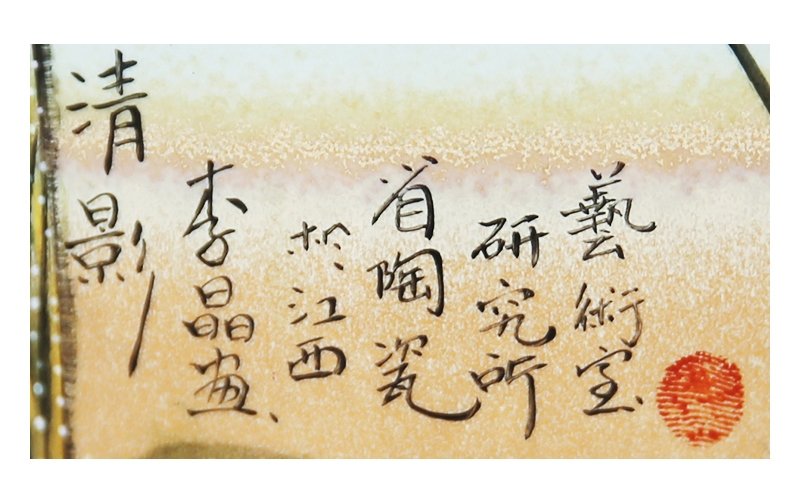 清影
李晶畫
於江西
省陶瓷
研究所
藝術室